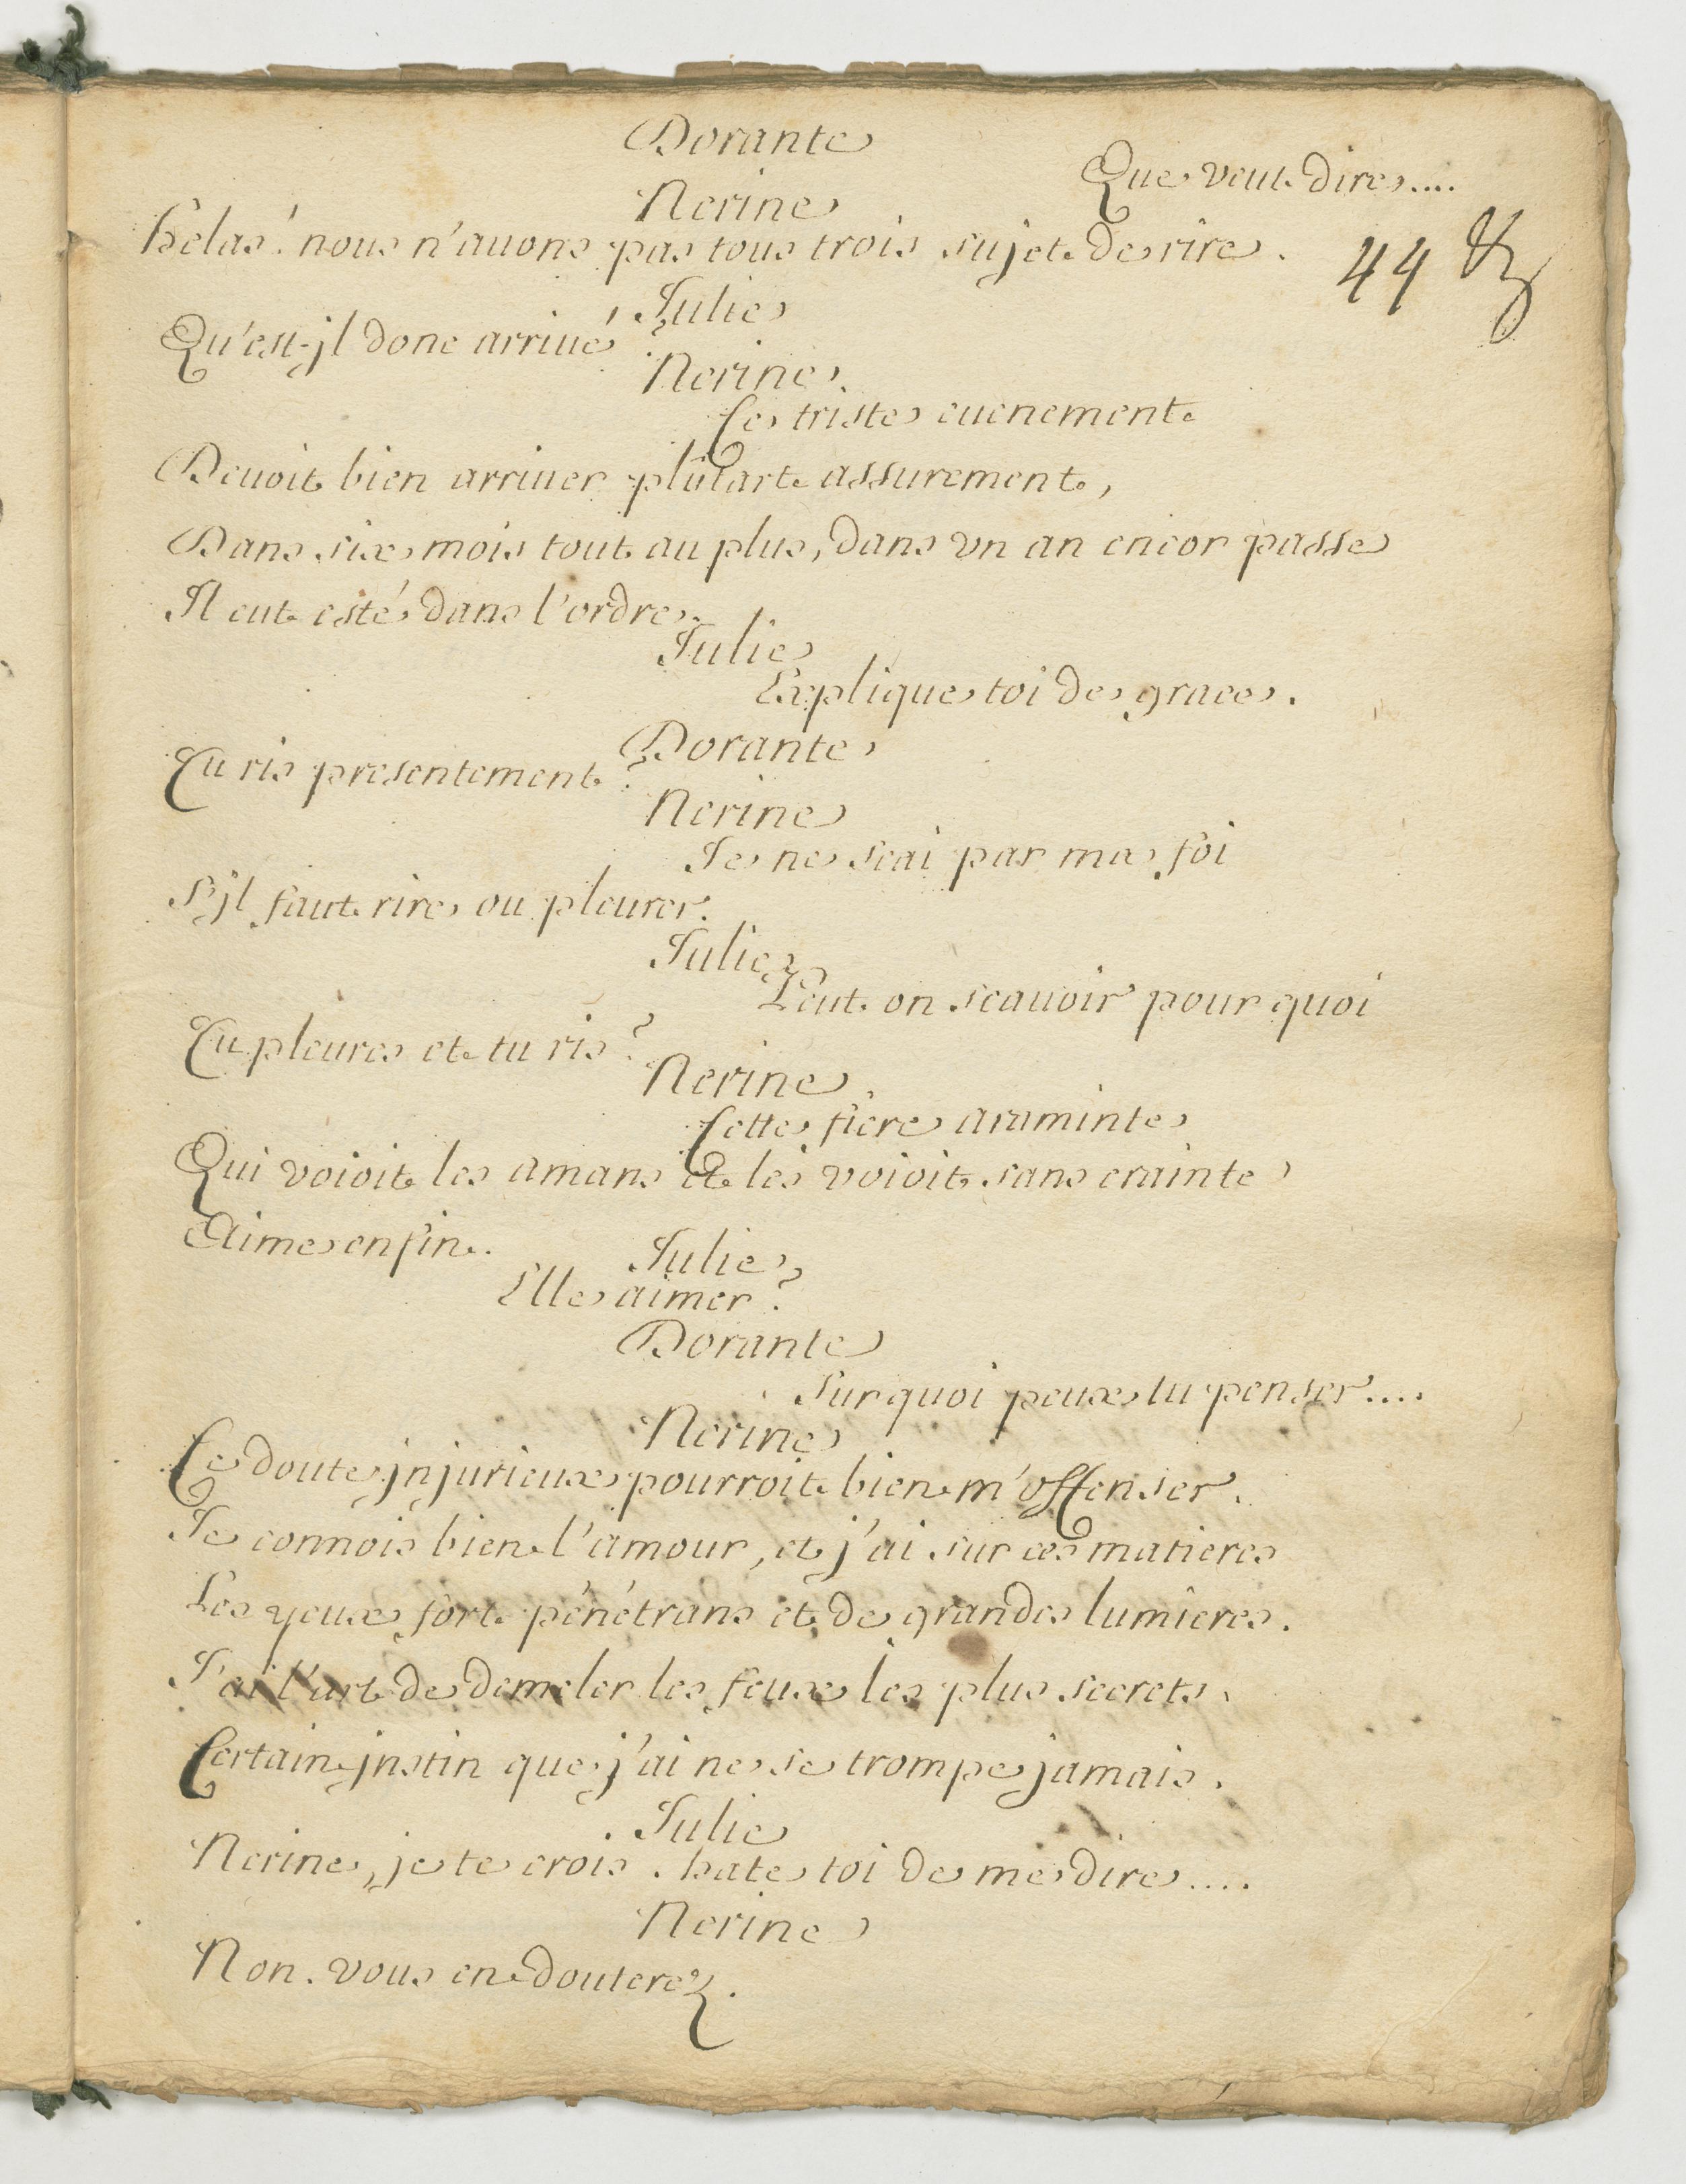 Dorante
Que veut dire....
Nerine
helas! nous n'auons pas tous trois sujet de rire.
44
Julie
Qu'est-jl donc arriué?
Nerine.
Ce triste euenement
Deuoit bien arriuer plûtart assurement,
Dans six mois tout au plus, dans vn an encor passe
Il eut esté dans l'ordre.
Julie
Explique toi de grace.
Dorante
Tu ris presentement?
Nerine
Je ne scai par ma foi
S'jl faut rire ou pleurer.
Julie
Peut on scauoir pour quoi
Tu pleures et tu ris?
Nerine.
Cette fiere araminte
Qui voioit les amans et les voioit sans crainte
Aime enfin.
Julie
Elle aimer?
Dorante
Sur quoi peux tu penser....
Nerine
Ce doute jnjurieux pourroit bien m'offenser.
Je connois bien l'amour, et j'ai sur ces matieres
Les yeux fort pénétrans et de grandes lumieres.
J'ai l'art de demeler les feux les plus secrets,
Certain jnstin que j'ai ne se trompe jamais.
Julie
Nerine, je te crois. hate toi de me dire....
Nerine
Non. vous en douterez.